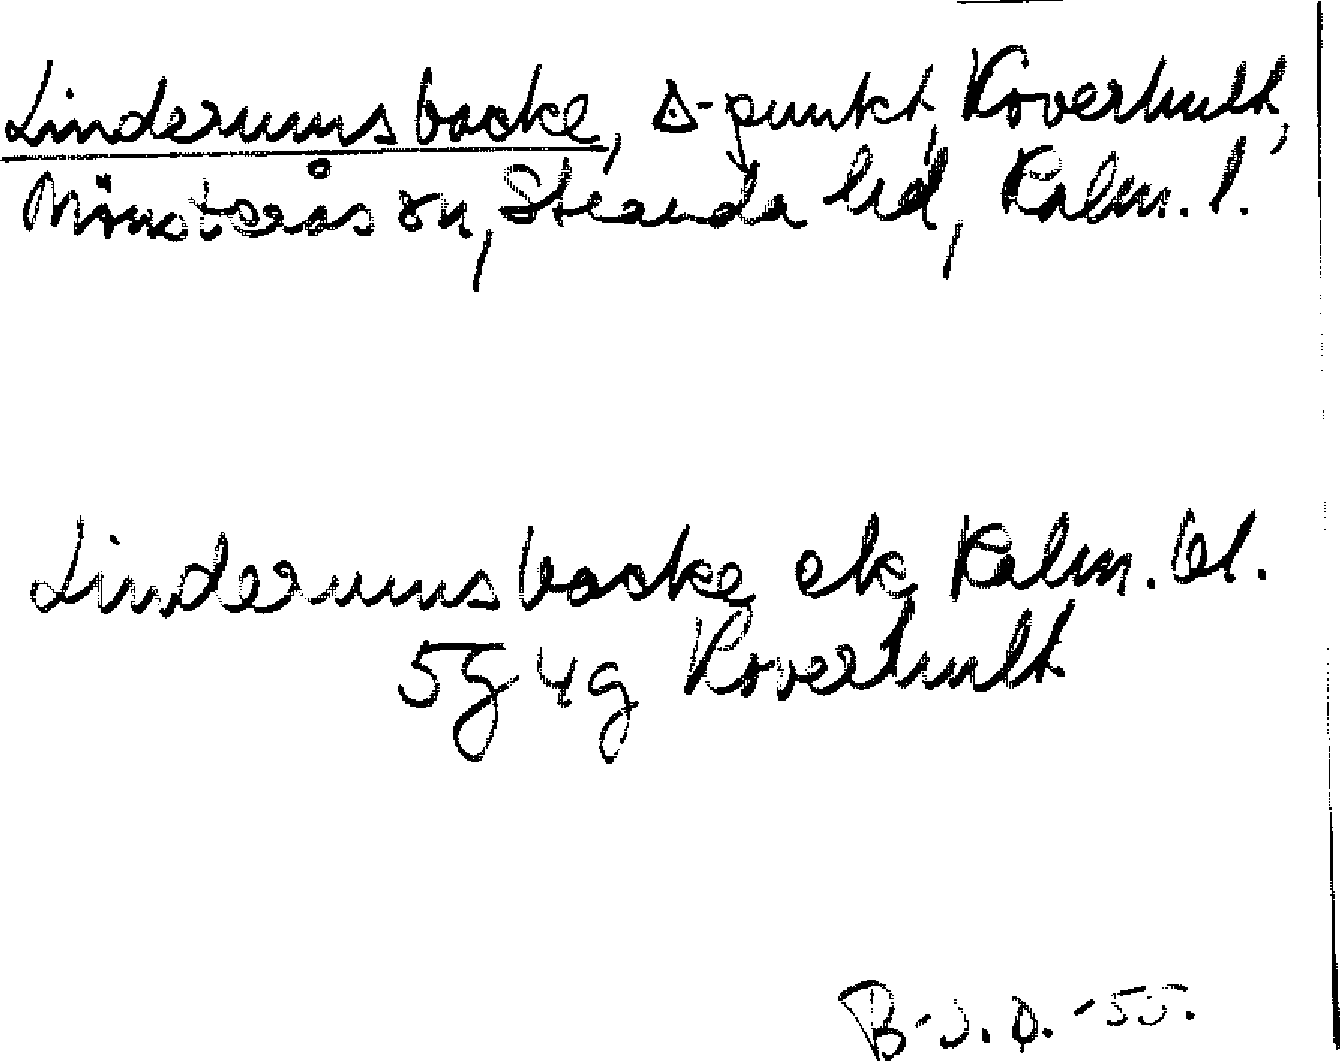 Linderumsbacke, △-punkt, Koverhult,
Mönsterås sn, Stranda hd, Kalm. l.
Linderumsbacke ek Kalm. bl.
5g 4g Koverhult
B-J. D. -55.